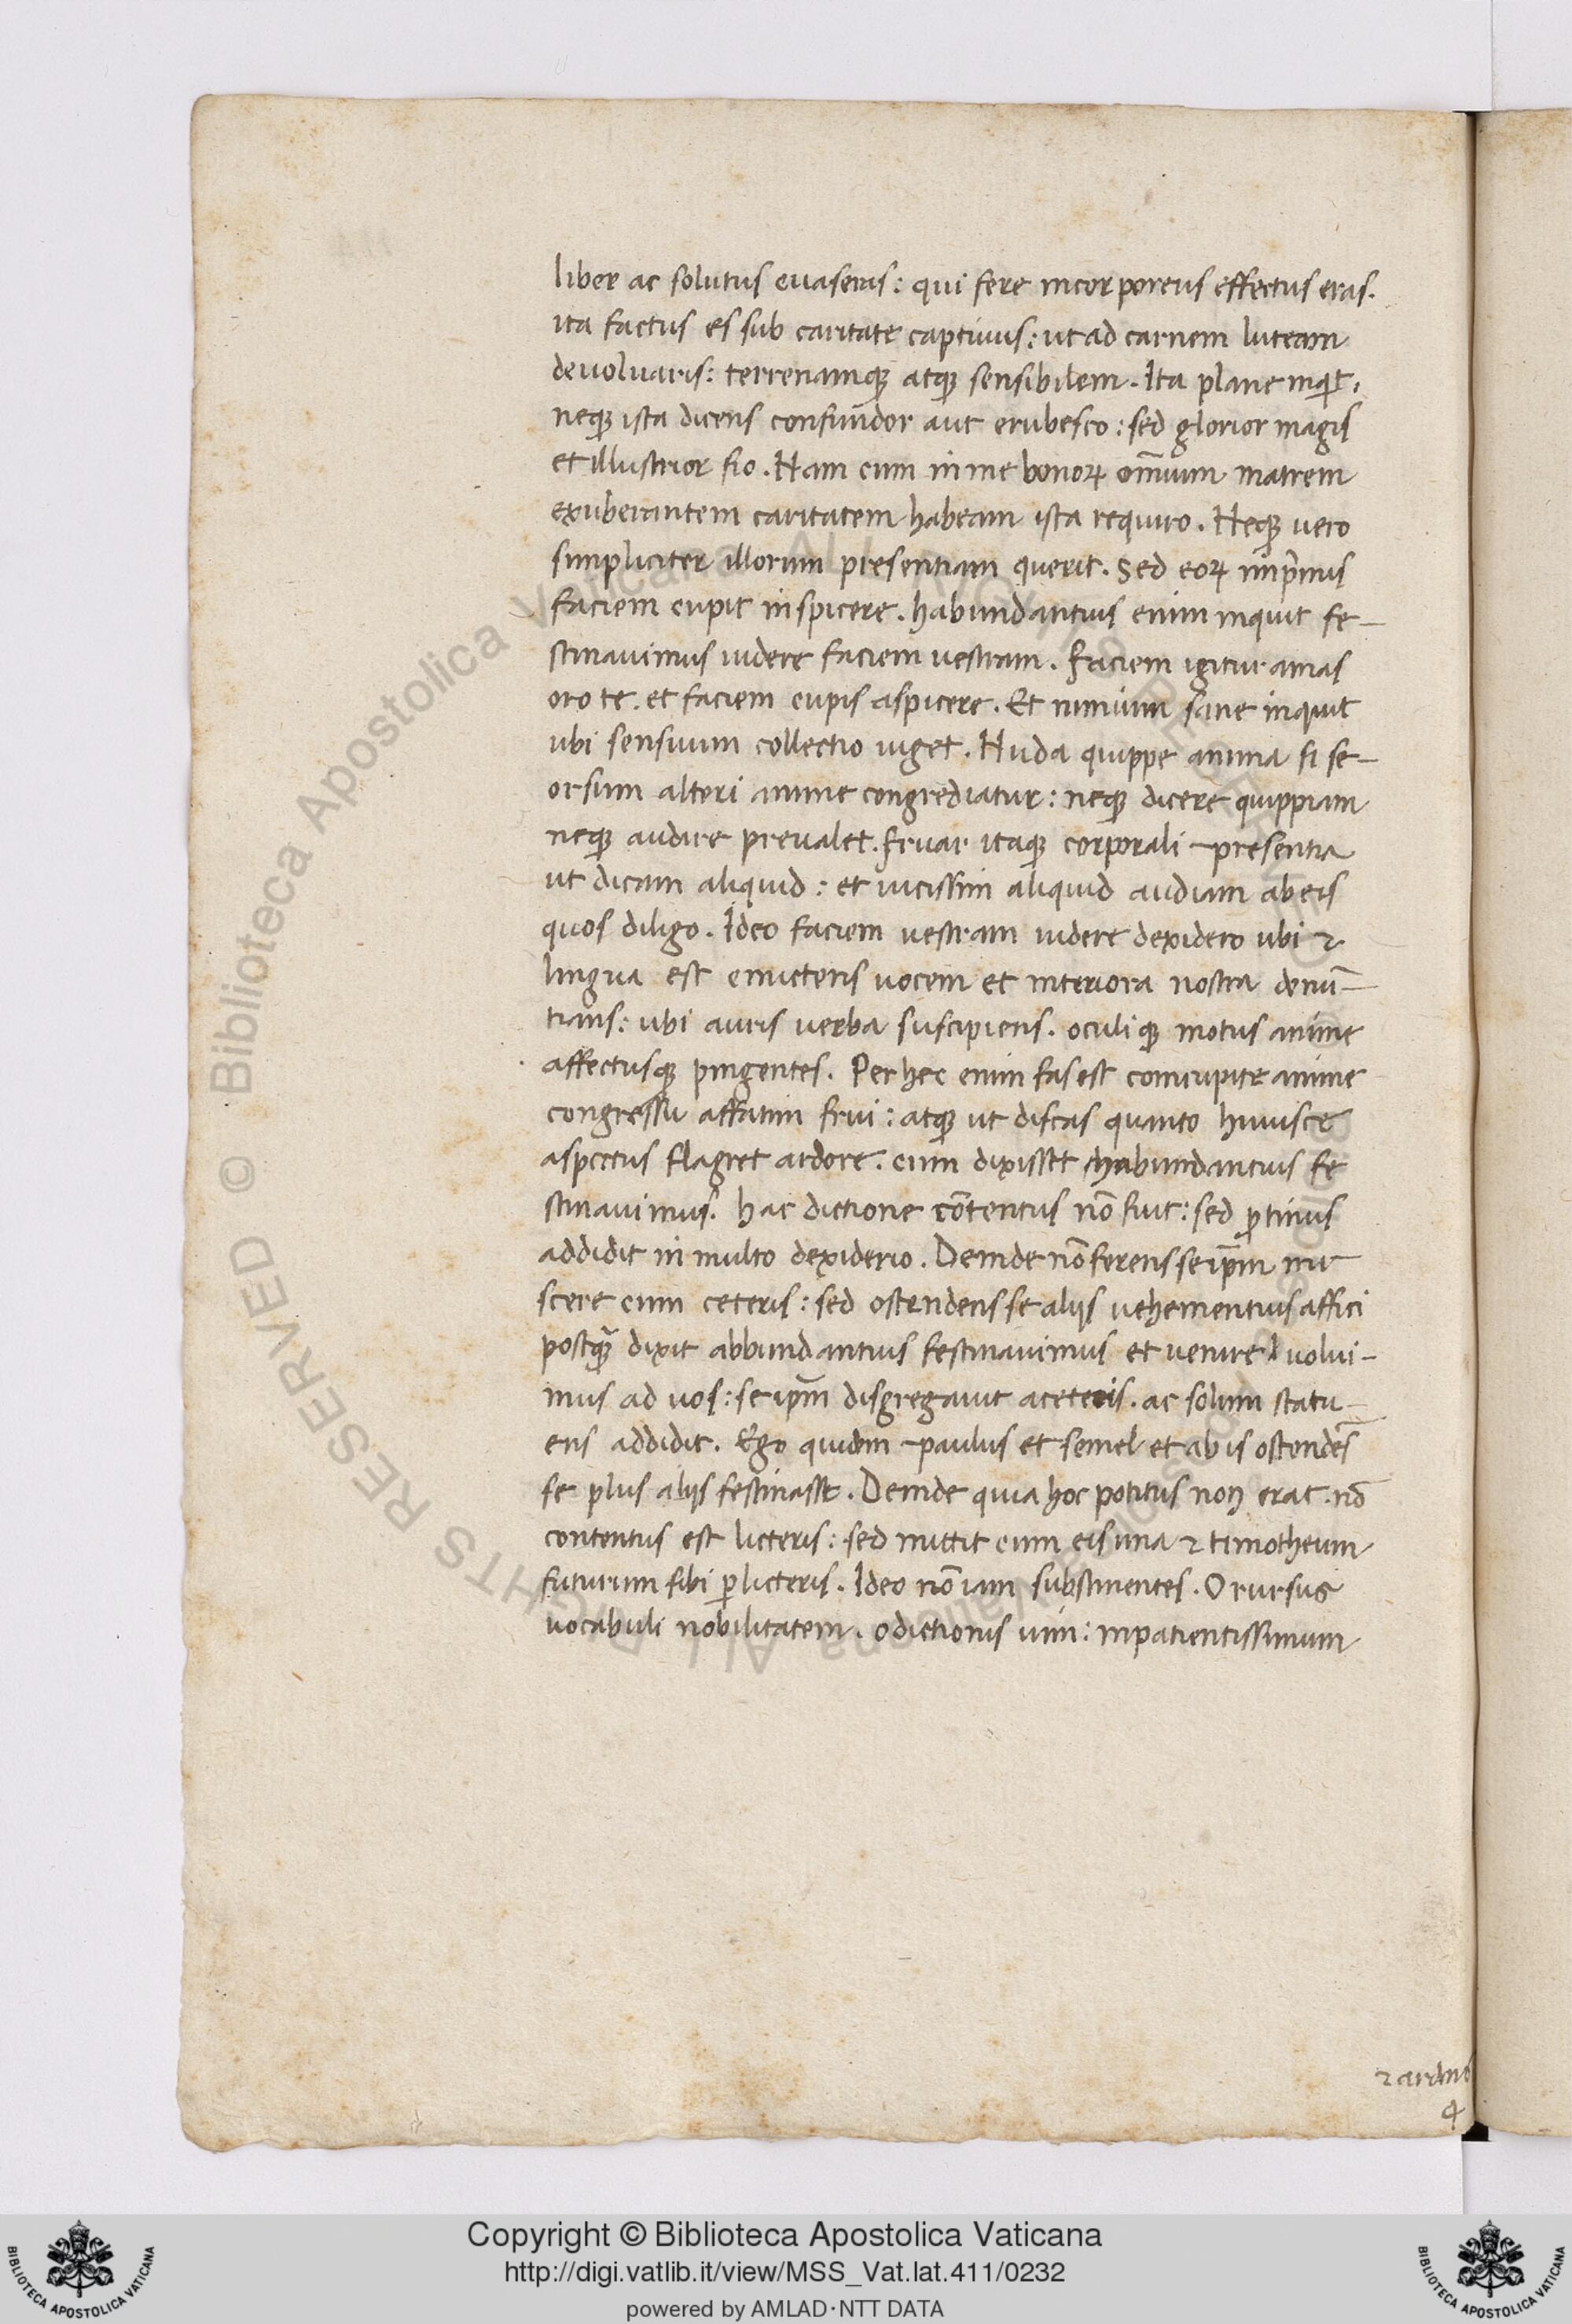 liber ac solutus euaseras: qui fere incorporeus effectus eras.
ita factus es sub caritate captiuus: ut ad carnem luteam
deuoluaris: terrenamqꝫ atqꝫ sensibilem. Ita plane inqͥt.
neqꝫ ista dicens confundor aut erubesco: sed glorior magis
et illustrior fio. Nam cum in me bonoꝝ om̅ium matrem
exuberantem caritatem habeam ista requiro. Neqꝫ uero
simpliciter illorum presentiam querit. Sed eoꝝ imp̅mis
faciem cupit inspicere. habundantius enim inquit fe-
stinauimus uidere faciem uestram. Faciem igitur amas
oro te. et faciem cupis aspicere. Et nimium sane inquit
ubi sensuum collectio uiget. Nuda quippe anima si se-
orsum alteri anime congrediatur: neqꝫ dicere quippiam
neqꝫ audire preualet. fruar itaqꝫ corporali presentia
ut dicam aliquid: et uicissim aliquid audiam ab eis
quos diligo. Ideo faciem uestram uidere dexidero ubi ⁊
lingua est emictens uocem et interiora nostra denū-
tians: ubi auris uerba suscipiens. oculiqꝫ motus anime
affectusqꝫ pingentes. Per hec enim fas est concupite anime
congressu affatim frui: atqꝫ ut discas quanto huiusce
aspectus flagret ardore. cum dixisset habundantius fe
stinauimus. hac dictione cōtentus nō fuit: sed ꝓtinus
addidit in multo dexiderio. Deinde nō ferens se ip̅m mi
scere cum ceteris: sed ostendens se aliis uehementius affici
postqꝫ̄ dixit abbundantius festinauimus et uenire uolui-
mus ad uos: se ip̅m disgregauit a ceteris. ac solum statu-
ens addidit. Ego quidem paulus et semel et ab is ostendēs
se plus aliis festinasse. Deinde quia hoc potitus non erat. nō
contentus est licteris: sed mittit cum eis una ⁊ timotheum
futurum sibi ꝑ licteris. Ideo nō iam substinentes. O rursus
uocabuli nobilitatem. o dictionis uim: inpatientissimum
⁊
Copyright © Biblioteca Apostolica Vaticana
http://digi.vatlib.it/view/MSS_Vat.lat.411/0232
powered by AMLAD·NTT DATA